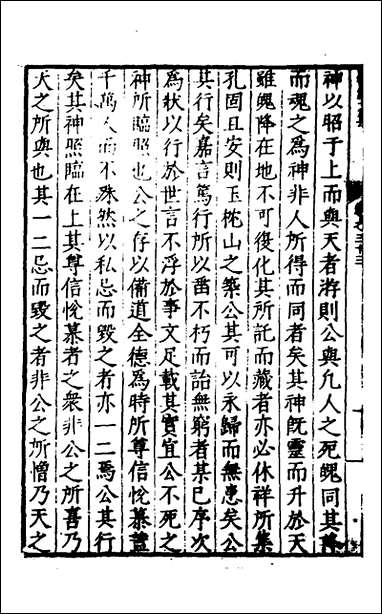 神以昭于上而與天者游則公與凡人之死魄同其降
而魂之為神非人所得而同者矣其神旣靈而升於天
雖魄降在地不可復化其所託而藏者亦必休祥所集
孔固且安則玉枕山之築公其可以永歸而無恚矣公
其行矣嘉言篤行所以凿不朽而詒無窮者某已序次
為狀以行於世言不浮於事文足載其實宜公不死之
神所臨照也公之存以備道全德為時所尊信悅慕葢
千萬人而不殊然以私忌而毀之者亦一二焉公其行
矣其神照臨在上其尊信悅慕者之衆非公之所喜乃
天之所與也其一二忌而毀之者非公之所憎乃天之